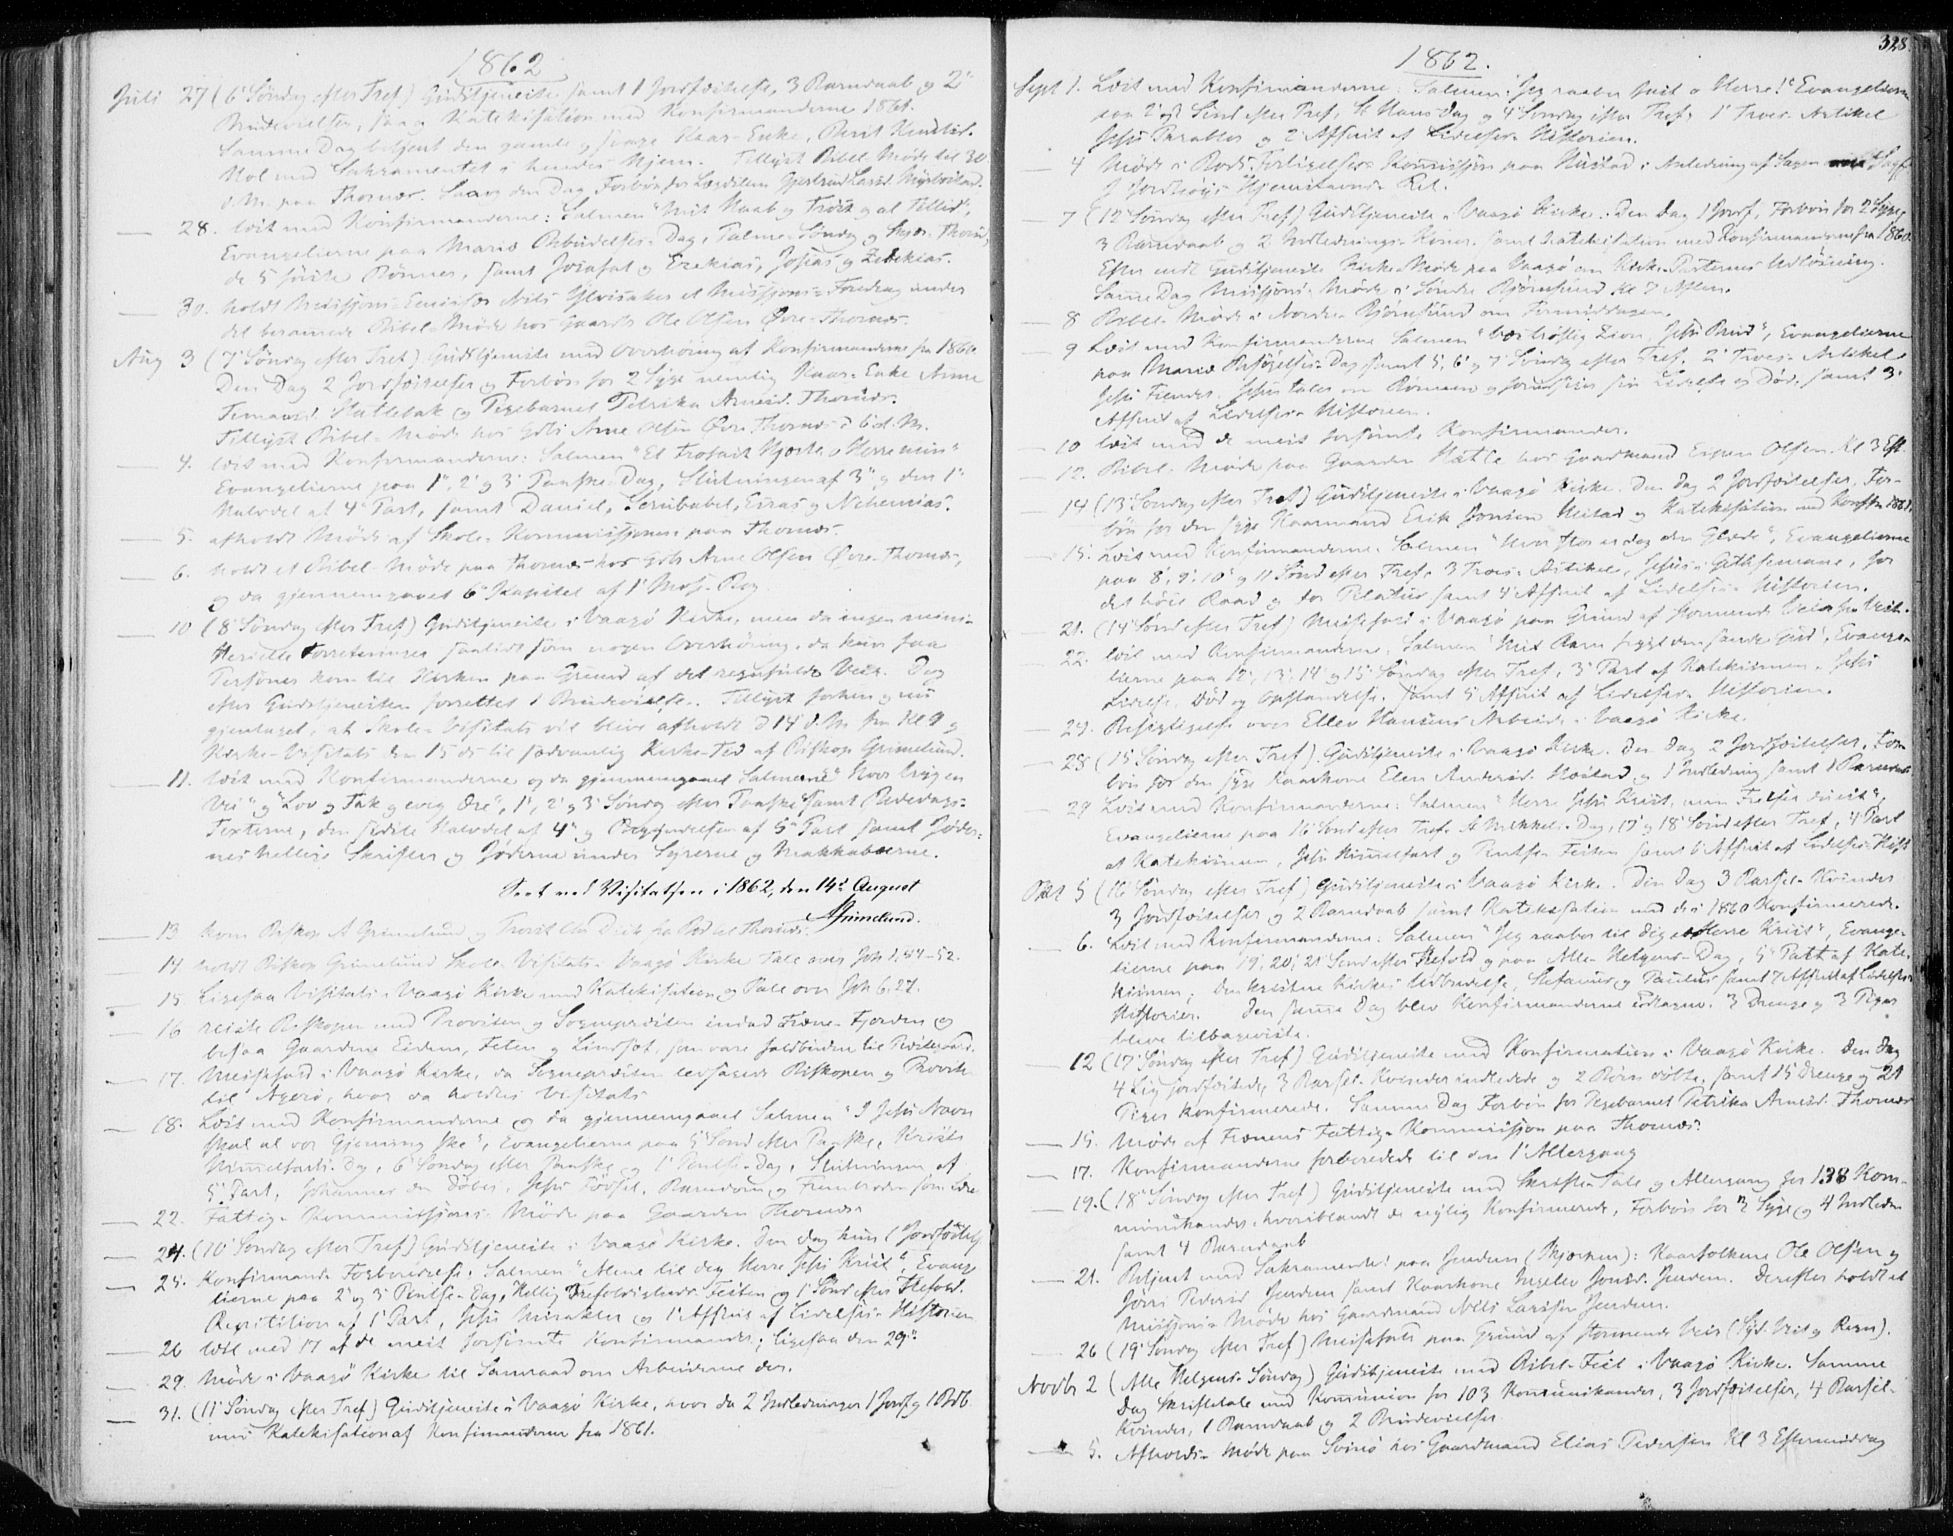 1862
Juli 27 (6' Søndag efter Tref) Gudstjeneste samt 1 Jordfæstelse, 3 Barndaab og 2
Brudevielser, saa og Katekisation med Konfirmanderne 1861.
Samme Dag betjent den gamle og svage Kaar-Enke, Berit Knudtsd.
Hol med Sakramentet i hendes Hjem. Tillyst Bibel Møde til 30
d. M. paa Thornæs. Saa og den Dag Forbøn for
— 28. læst med Konfirmanderne: Salmen "Mit Haab og Trøst og al Tillid",
Evangelierne paa Mariæ Bebudelses-Dag, Palme-Søndag og Skjær-Thorsd,
de 5 første Bønner, samt Josafat og Ezekias, Josias og Zedekias.
— 30. holdt Missions-Emissær Nils Ylvisaker et Missions-Foredrag under
det berammede Bibel-Møde hos Gaardb. Ole Olsen Øvre-Thornæs.
Aug 3 (7' Søndag efter Tref) Gudstjeneste med Overhøring af Konfirmanderne fra 1860
Den Dag 2 Jordfæstelser og Forbøn for 2 Syge nemlig Kaar-Enke Anne
Hatlebak og Pigebarnet Petrika Arnesd. Thornæs.
Tillyst Bibel-Møde hos Gdb. Arne Olsen Øvre-Thornæs d 6 d. M.
— 4. læst med Konfirmanderne: Salmen "Et trofast Hjerte o Herre min"
Evangelierne paa 1', 2' og 3' Paaske-Dag, Slutningen af 3' og den 1'
Halvdel af 4' Part, samt Daniel, Serubabel, Esras og Nehemias.
— 5. afholdt Møde af Skole-Kommissionen paa Thornæs.
— 6. holdt et Bibel-Møde paa Thornæs hos Gdb. Arne Olsen Øvre-Thornæs,
og da gjennemgaaet 6' Kapitel af 1' Mos. Bog
— 10 (8' Søndag efter Tref) Gudstjeneste i Vaagø Kirke, men da ingen mini-
sterielle Forretninger saalidt som nogen Overhøring, da kun faa
Personer kom til Kirken paa Grund af det regnfulde Veir. Dog
efter Gudstjenesten forrettet 1 Brudevielse. Tillyst forhen og nu
gjentaget, at Skole-Visitats vil blive afholdt d 14 d. M. fra Kl 9 og
Kirke-Visitats den 15 ds til sædvanlig Kirke-Tid af Biskop Grimelund.
— 11. læst med Konfirmanderne og da gjennemgaaet Salmerne "Hvor trøg en
Vei" og "Lov og Tak og evig Ære", 1', 2' og 3' Søndag efter Paaske samt Bededags-
Texterne, den sidste Halvdel af 4' og Begyndelsen af 5' Part samt Jøder-
nes hellige Skrifter og Jøderne under Syrerne og Makkabæerne.
Seet ved Visitatsen i 1862, den 14de August
AGrimelund.
— 13 kom Biskop A Grimelund og Provst fra Bod til Thornæs.
— 14 holdt Biskop Grimelund Skole-Visitats i Vaagø Kirke Tale over Joh 1,44-52.
— 15 Ligesaa Visitats i Vaagø Kirke med Katekisation og Tale over Joh 6.27.
— 16 reiste Biskopen med Provsten og Sognepræsten indad Fræne-Fjorden og
besaa Gaardene Eidem, Teten og Lindset, som vare
— 17. Messefald i Vaagø Kirke, da Sognepræsten ledsagede Biskopen og Provsten
til Agerø, hvor da holdtes Visitats
— 18. Læst med Konfirmanderne og da gjennemgaaet Salmen "I Jesu Navn
skal al vor Gjerning ske", Evangelierne paa 5' Sønd efter Paaske, Kristi
Himmelfarts-Dag, 6' Søndag efter Paaske og 1' Pintse-Dag, Slutningen af
5' Part, Johannes den Døber, Jesu Fødsel, Barndom og Fremtræden som Lærer
— 22. Fattig-Kommissions-Møde paa Gaarden Thornæs
— 24. (10' Søndag efter Tref) Gudstjeneste i Vaagø Kirke. Den Dag kun 1 Jordfæstelse
— 25. Konfirmand-Forberedelse. Salmen "Alene til dig Herre Jesu Krist", Evange-
lierne paa 2' og 3' Pintse-Dag, Hellig Trefoldigheds Festen og 1' Sønd efter Trefold.
Repitition af 1' Part, Jesu Mirakler og 1' Afsnit af Lidelses-Historien
— 26 læst med 17 af de mest forsømte Konfirmander; ligesaa den 29'
— 29. Møde i Vaagø Kirke til Samraad om Arbeiderne der.
— 31. (11' Søndag efter Tref) Gudstjeneste i Vaagø Kirke, hvor da 2 Indledninger 1 Jordf. og 1 Brdb
med Katekisation af Konfirmanderne fra 1861.
328
1862.
Sept 1. Læst med Konfirmanderne: Salmen "Jeg raaber fast o Herre!" Evangelierne
paa 2' og 3' Sønd efter Tref, St Hans Dag og 4' Søndag efter Tref, 1' Troes-Artikel
Jesu Parabler og 2' Afsnit af Lidelses-Historien.
— 4 Møde i Bods Forligelses-Kommission paa Hustad i Anledning af Sagen
— 7 (12' Søndag efter Tref) Gudstjeneste i Vaagø Kirke. Den Dag 1 Jordf, Forbøn for 2 Syge,
3 Barndaab og 2 Indlednings-Koner samt Katekisation med Konfirmanderne fra 1860.
Efter endt Gudstjeneste Kirke-Møde paa Vaagø om Kirke-Parternes Udløsning.
Samme Dag Missions-Møde i Søndre Bjørnsund Kl 7 Aften.
— 8 Bibel-Møde i Nordre Bjørnsund om Formiddagen.
— 9 Læst med Konfirmanderne Salmen "Vær trøstig Zion, Jesu Brud", Evangelierne
paa Mariæ Besøgelses-Dag samt 5', 6' og 7' Søndag efter Tref, 2' Troes-Artikel,
Jesu Fiender. Jesus taler om Rommerne og forudsiger sin Lidelse og Død, samt 3'
Afsnit af Lidelses-Historien.
— 10 læst med de mest forsømte Konfirmander.
— 12. Bibel-Møde paa Gaarden Hatle hos Gaardmand Espen Olsen Kl 3 Eft.
— 14 (13' Søndag efter Tref) Gudstjeneste i Vaagø Kirke. Den Dag 2 Jordfæstelser, For-
bøn for den syge Kaarmand Erik Jonsen Mestad og Katekisation med Konf fra 1861.
— 15. Læst med Konfirmanderne. Salmen "Hvor stor er dog den Glæde", Evangelierne
paa 8', 9', 10' og 11 Sønd efter Tref, 3 Troes-Artikel, Jesus i Gethsemane, for
det høie Raad og for Pilatus samt 4' Afsnit af Lidelses-Historien.
— 21. (14' Sønd efter Tref) Messefald i Vaagø paa Grund af stormende Veir fra Vest.
— 22. læst med Konfirmanderne. Salmen "Mit Barn frygt den sande Gud", Evange-
lierne paa 12', 13', 14' og 15' Søndag efter Tref, 3' Part af Katekismen, Jesu
Lidelse, Død og Opstandelse samt 5 Afsnit af Lidelses-Historien.
— 24. Besigtigelse over Ellev Hansens Arbeide i Vaagø Kirke.
— 28 (15' Søndag efter Tref) Gudstjeneste i Vaagø Kirke. Den Dag 2 Jordfæstelser, For-
bøn for den syge Kaarkone Elen Andersd. Hostad og 1 Indledning samt 1 Barndaab.
— 29 Læst med Konfirmanderne: Salmen "Herre Jesu Krist, min Frelser du est",
Evangelierne paa 16' Sønd efter Tref. St Mikkels-Dag, 17' og 18' Sønd efter Tref, 4' Part
af Katekismen, Jesu Himmelfart og Pintse-Festen samt 6' Afsnit af Lidelses-Hist
Okt 5 (16' Søndag efter Tref) Gudstjeneste i Vaagø Kirke. Den Dag 3 Barsel-Kvinder
3 Jordfæstelser og 2 Barndaab samt Katekisation med de i 1860 Konfirmerede.
— 6. Læst med Konfirmanderne: Salmen "Jeg raaber til dig o Herre Krist", Evange-
lierne paa 19', 20', 21' Sønd efter Trefold og paa Alle-Helgens-Dag, 5' Part af Kate-
kismen; den kristne Kirkes Udbredelse, Stefanus og Paulus samt 7' Afsnit af Lidelses-
Historien. Den samme Dag blev Konfirmanderne udtagne. 3 Drenge og 3 Piger
bleve tilbageviste.
— 12 (17' Søndag efter Tref) Gudstjeneste med Konfirmation i Vaagø Kirke. Den Dag
4 Lig jordfæstede, 3 Barsel-Kvinder indledede og 2 Børn døbte, samt 15 Drenge og 21
Piger konfirmerede. Samme Dag Forbøn for Pigebarnet Petrika Arnesd. Thornæs
— 15. Møde af Frænens Fattig-Kommission paa Thornæs.
— 17. Konfirmanderne forberedede til den 1' Altergang
— 19. (18' Søndag efter Tref) Gudstjeneste med Skrifte-Tale og Altergang for 138 Kom-
munikander, hvoriblandt de nylig Konfirmerede, Forbøn for 2 Syge og 4 Indledn
samt 4 Barndaab
— 21. Betjent med Sakramentet paa Jendem: Kaarfolkene Ole Olsen og
Jøri Pedersd Jendem samt Kaarkone Ingelev Jonsd. Jendem. Derefter holdt et
Missions-Møde hos Gaardmand Nils Larssen Jendem.
— 26 (19' Søndag efter Tref) Messefald paa Grund af stormende Veir (Syd-Vest og Regn).
Novbr 2 (Alle Helgens-Søndag) Gudstjeneste med Bibel-Fest i Vaagø Kirke. Samme
Dag Skriftetale med Kommunion for 103 Kommunikander, 3 Jordfæstelser, 4 Barsel-
Kvinder, 1 Barndaab og 2 Brudevielser.
— 5. Afholds-Møde paa Svinø hos Gaardmand Elias Pedersen Kl 3 Eftermiddag